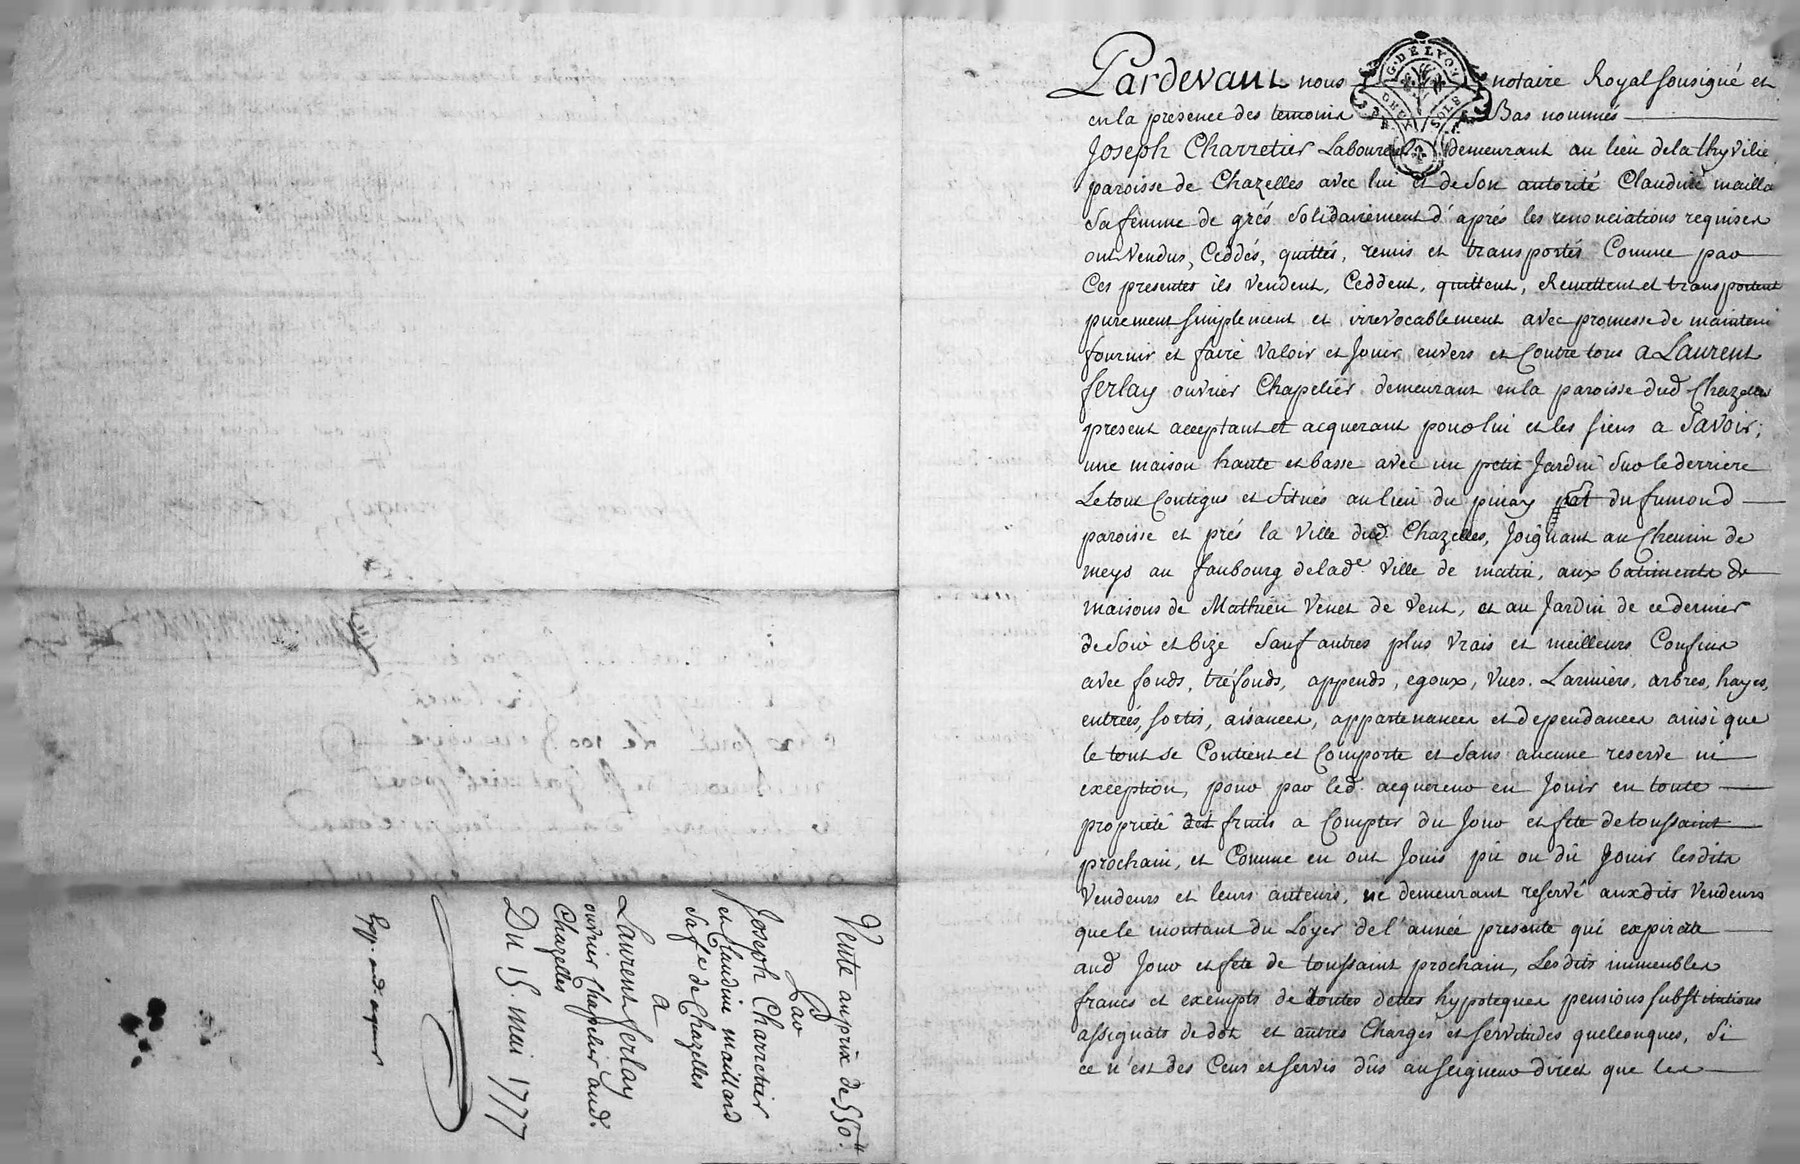 Pardevant nous notaire Royal sousigné et
en la presence des temoins Bas nommés
G. DE LYON
DEUX SOLS
Joseph Charretier Laboureur demeurant au lieu de la thyvilie
paroisse de Chazelles avec lui et de son autorité Claudine mailla
sa femme de grés solidairement d'aprés les renonciations requises
ont Vendus, Ceddés, quittés, remis et transportés Comme par
Ces presentes ils Vendent, Ceddent, quittent, Remettent et transportent
purement simplement et irrevocablement avec promesse de maintenir
fournir et faire Valoir et Jouir envers et Contre tous a Laurent
ferlay ouvrier Chapelier demeurant en la paroisse dud Chazelles
present acceptant et acquerant pour lui et les siens a Savoir;
une maison haute et basse avec un petit Jardin sur le derriere
Le tout Contigus et situés au lieu du pinay du fumond
paroisse et prés la Ville dud. Chazelles, Joignant au Chemin de
meys au faubourg de lade. Ville de matin, aux batiments de
maisons de Mathieu Venet de Vent, et au Jardin de ce dernier
de soir et bize sauf autres plus Vrais et meilleurs Confins
avec fonds, tréfonds, appends, egoux, Vues. Larmiers, arbres, hayes,
entrées, sortis, aisances, appartenances et dependances ainsi que
le tout se Contient et Comporte et sans aucune reserve ni
exception, pour par led. acquereur en Jouir en toute
propriété fruits a Compter du Jour et fete de toussaint
prochain, et Comme en ont Jouis pû ou dû Jouir lesdits
Vendeurs et leurs auteurs, ne demeurant reservé auxdits Vendeurs
que le montant du Loyer de l'année presente qui expirate
aud Jour et fete de toussaint prochain, Lesdits immeubles
francs et exempts de toutes dettes hypoteques pensions substitutions
assignats de dot et autres Charges et servitudes quelconques, si
ce n'est des Cens et servis dûs au seigneur direct que les
Vente au prix de 550.lt
Par
Joseph Charretier
et Claudine maillard
sa fe de Chazelles
a
Laurent ferlay
ouvrier Chapelier aud.
Chazelles
Du 15. mai 1777
Exp. aud. acquereur